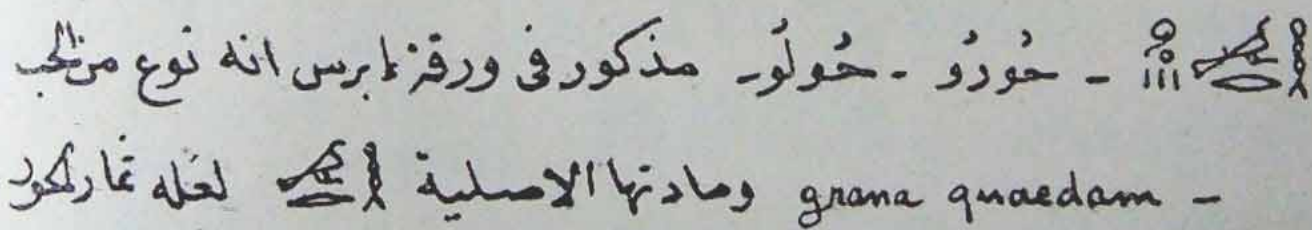 - حُورُو - حُولُو - مذكور فى ورقة ابرس انه نوع من الحب
- grana quaedam ومادتها الاصلية لعله ثمار الحور